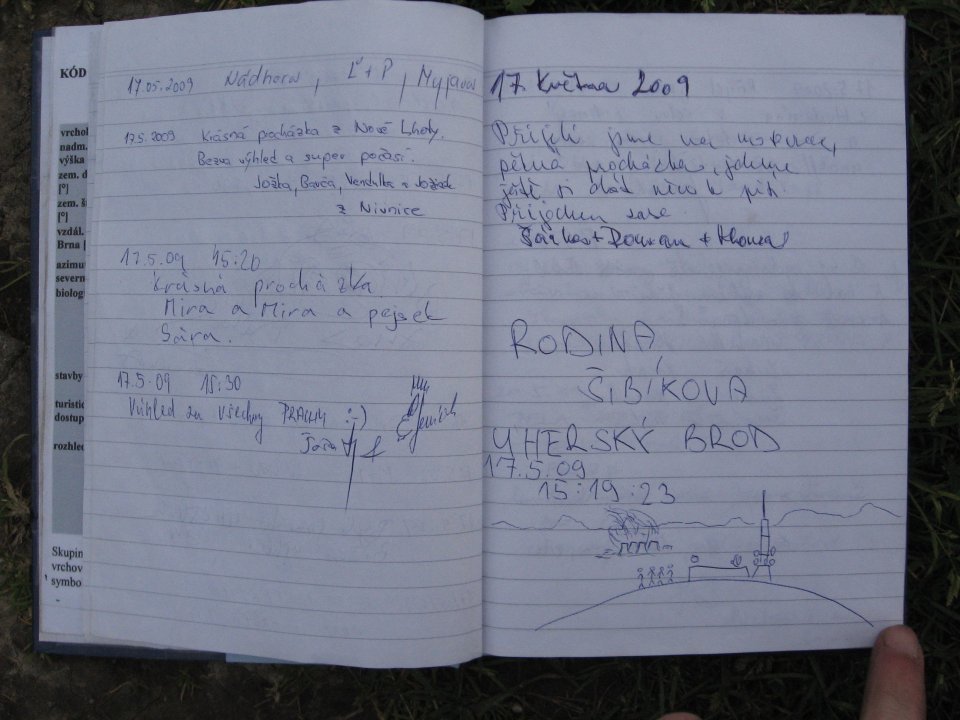 KÓD
vrchol
nadm.
výška
zem. d
[°]
zem. š
[°]
vzdál.
Brna [
azimu
severn
biolog
stavby
turistic
dostup
rozhled
Skupin
vrchov
symbo
17.05.2009 Nádhera, L+P, Myjava
17.5.2009 Krásná procházka z Nové Lhoty.
Bezva výhled a super počasí.
Jožka, Bavča, Vendulka a
z Nivnice
17.5.09 15:20
Krásná procházka
Mira a Mira a pejsek
Sára.
17.5.09 15:30
Výhled za všechny PRACHY :-)
17. Května 2009
Přijeli jsme na
pěkná procházka, jdeme
ještě si dát něco k pití.
Přijedem zase
Šárka + Roman +
RODINA
ŠIBÍKOVA
UHERSKÝ BROD
17.5.09
15:19:23